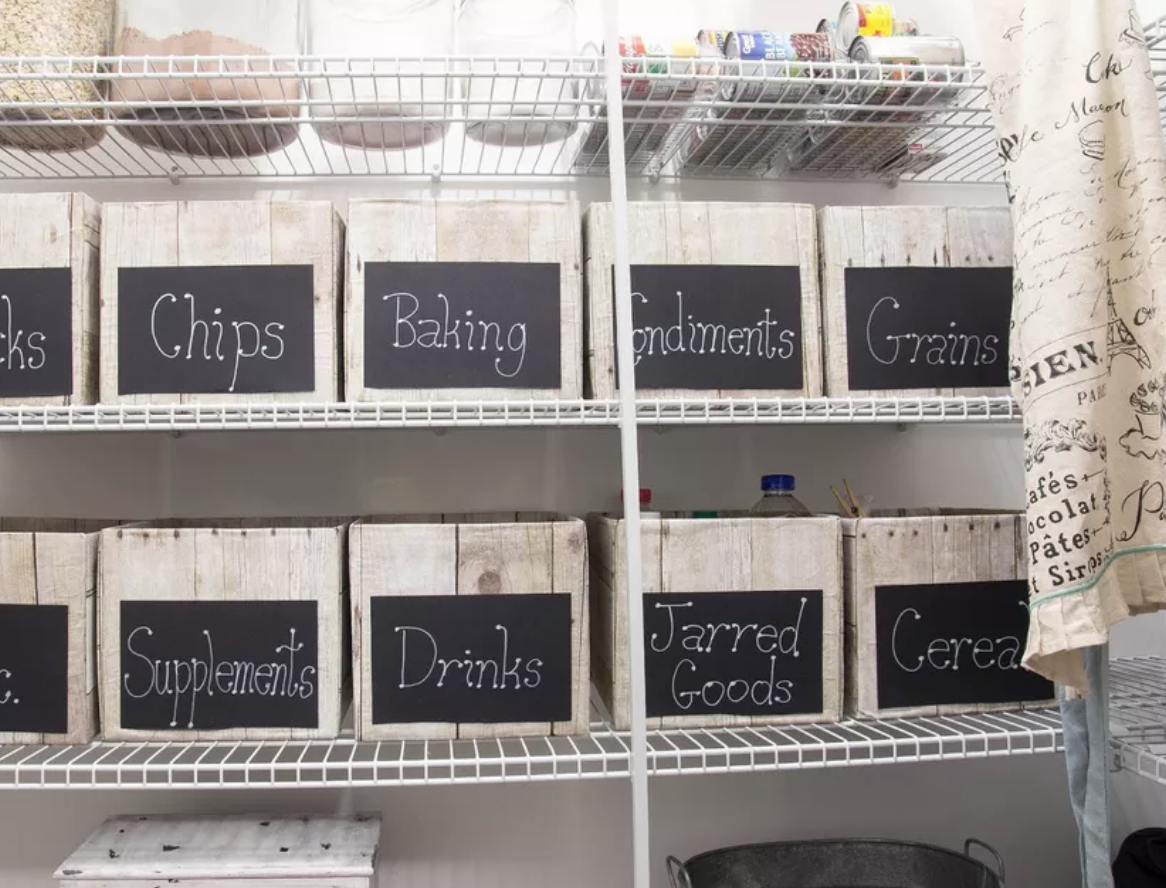 cks
Chips
Baking
ondiments
Grains
c.
Supplements
Drinks
Jarred
Goods
Cerea
Macon
SIEN
PAR
afés
ocolat
Pâtes
t Sirops